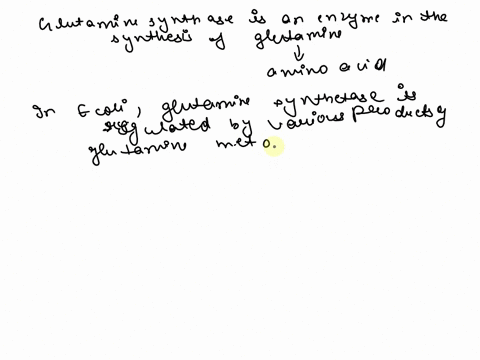 Glutamine synthase is an enzyme in the
synthesis of glutamine
↓
amino acid
In Ecoli, glutamine synthetase is
regulated by various products of
glutamine meto